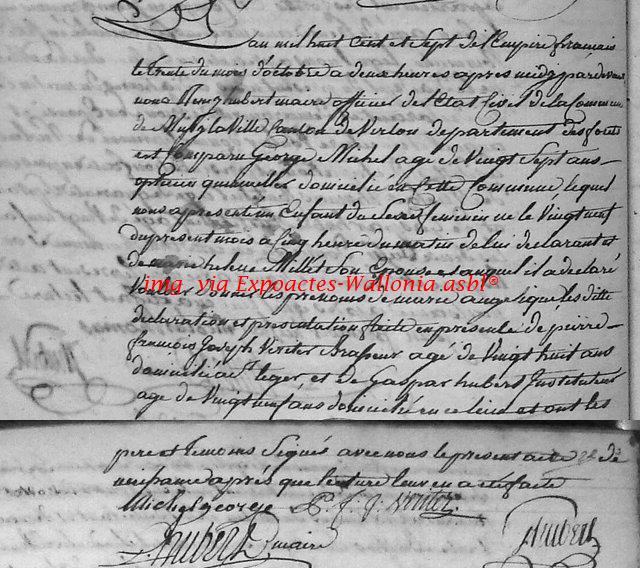 an mil huit Cent et Sept de l'Empire français
le trente du mois d'octobre a deux heures apres midy pardevant
nous hubert maire officier de l'Etat Civil de la Commune
de Mussy la Ville Canton de Virton departement des forets
est Comparu George Michel agé de Vingt Sept ans
domicilié en Cette Commune lequel
nous a presenté un Enfant du Sexe feminin né le Vingt neuf
du present mois a Cinq heure du matin de lui declarant et
de marie helene Millet Son Epouse et auquel il a declaré
Vouloir donner les prenoms de marie angelique les ditte
declaration et presentation faite en presence de pierre
françois Joseph Veriter Brasseur agé de Vingt huit ans
domicilié a St leger, et de Gaspar hubert Instituteur
age de Vingt neuf ans domicilié en ce lieu et ont les
img via Expoactes-Wallonia asbl©
pere et temoins Signés avec nous le present acte de
naissance aprés que lecture leur en a été faite
Michel george P. f. j. Veriter
hubert maire
hubert